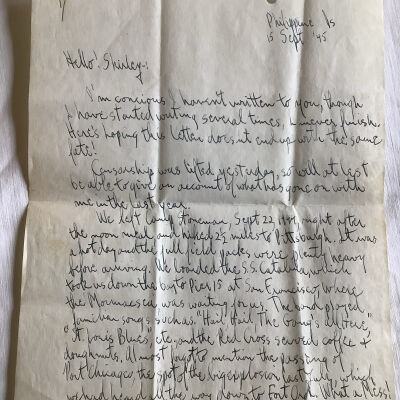 Philippine Is
15 Sept '45
Hello! Shirley-:
I'm concious I havent written to you, though
I have started writing several times, I never finish.
Here's hoping this letter doesnt end up with the same
fate!
Censorship was lifted yesterday, so will at last
be able to give an account of what has gone on with
me in the last year.
We left Camp Stoneman, Sept 22 1944, right after
the noon meal and hiked 2½ miles to Pittsburgh. It was
a hot day and the full field packs were plenty heavy
before arriving. We boarded the S.S. Catalina which
took us down the bay to Pier 15 at San Francisco, where
the was waiting for us. The band played
familiar songs such as "Hail Hail The Gang's all Here,"
"St. Louis Blues", etc, and the Red Cross served coffee &
doughnuts. Almost forgot to mention the passing of
Port Chicago the spot of the big explosion last July, which
we had heard all the way down to Fort Ord. What a Mess!